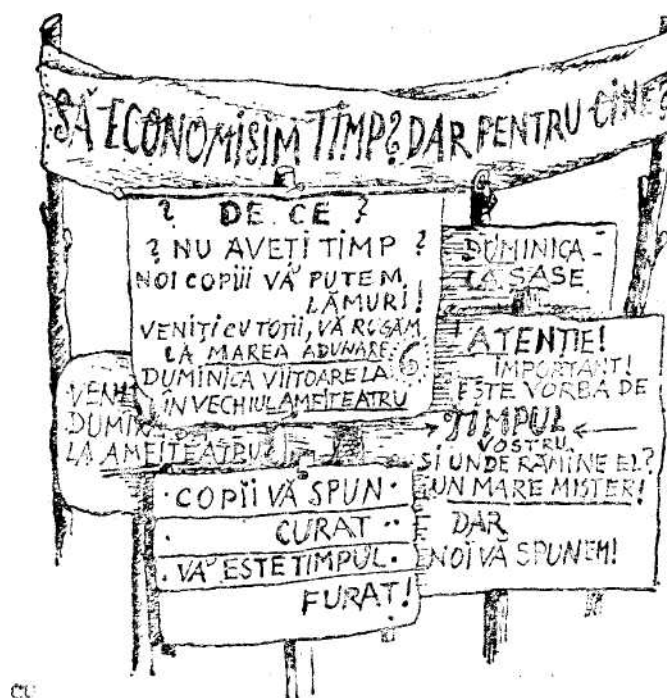 SĂ ECONOMISIM TIMP? DAR PENTRU CINE?
? DE CE ?
? NU AVEȚI TIMP ?
NOI COPIII VĂ PUTEM
LĂMURI!
VENIȚI CU TOȚII, VĂ RUGĂM
LA MAREA ADUNARE
DUMINICA VIITOARE LA 6
ÎN VECHIUL AMFITEATRU
DUMINICA -
LA ȘASE
VENI
DUMIN
LA AMFITEATRU
ATENȚIE!
IMPORTANT!
ESTE VORBA DE
TIMPUL
VOSTRU
ȘI UNDE RĂMÎNE EL?
UN MARE MISTER!
DAR
NOI VĂ SPUNEM!
COPIII VĂ SPUN
CURAT
VĂ ESTE TIMPUL
FURAT!